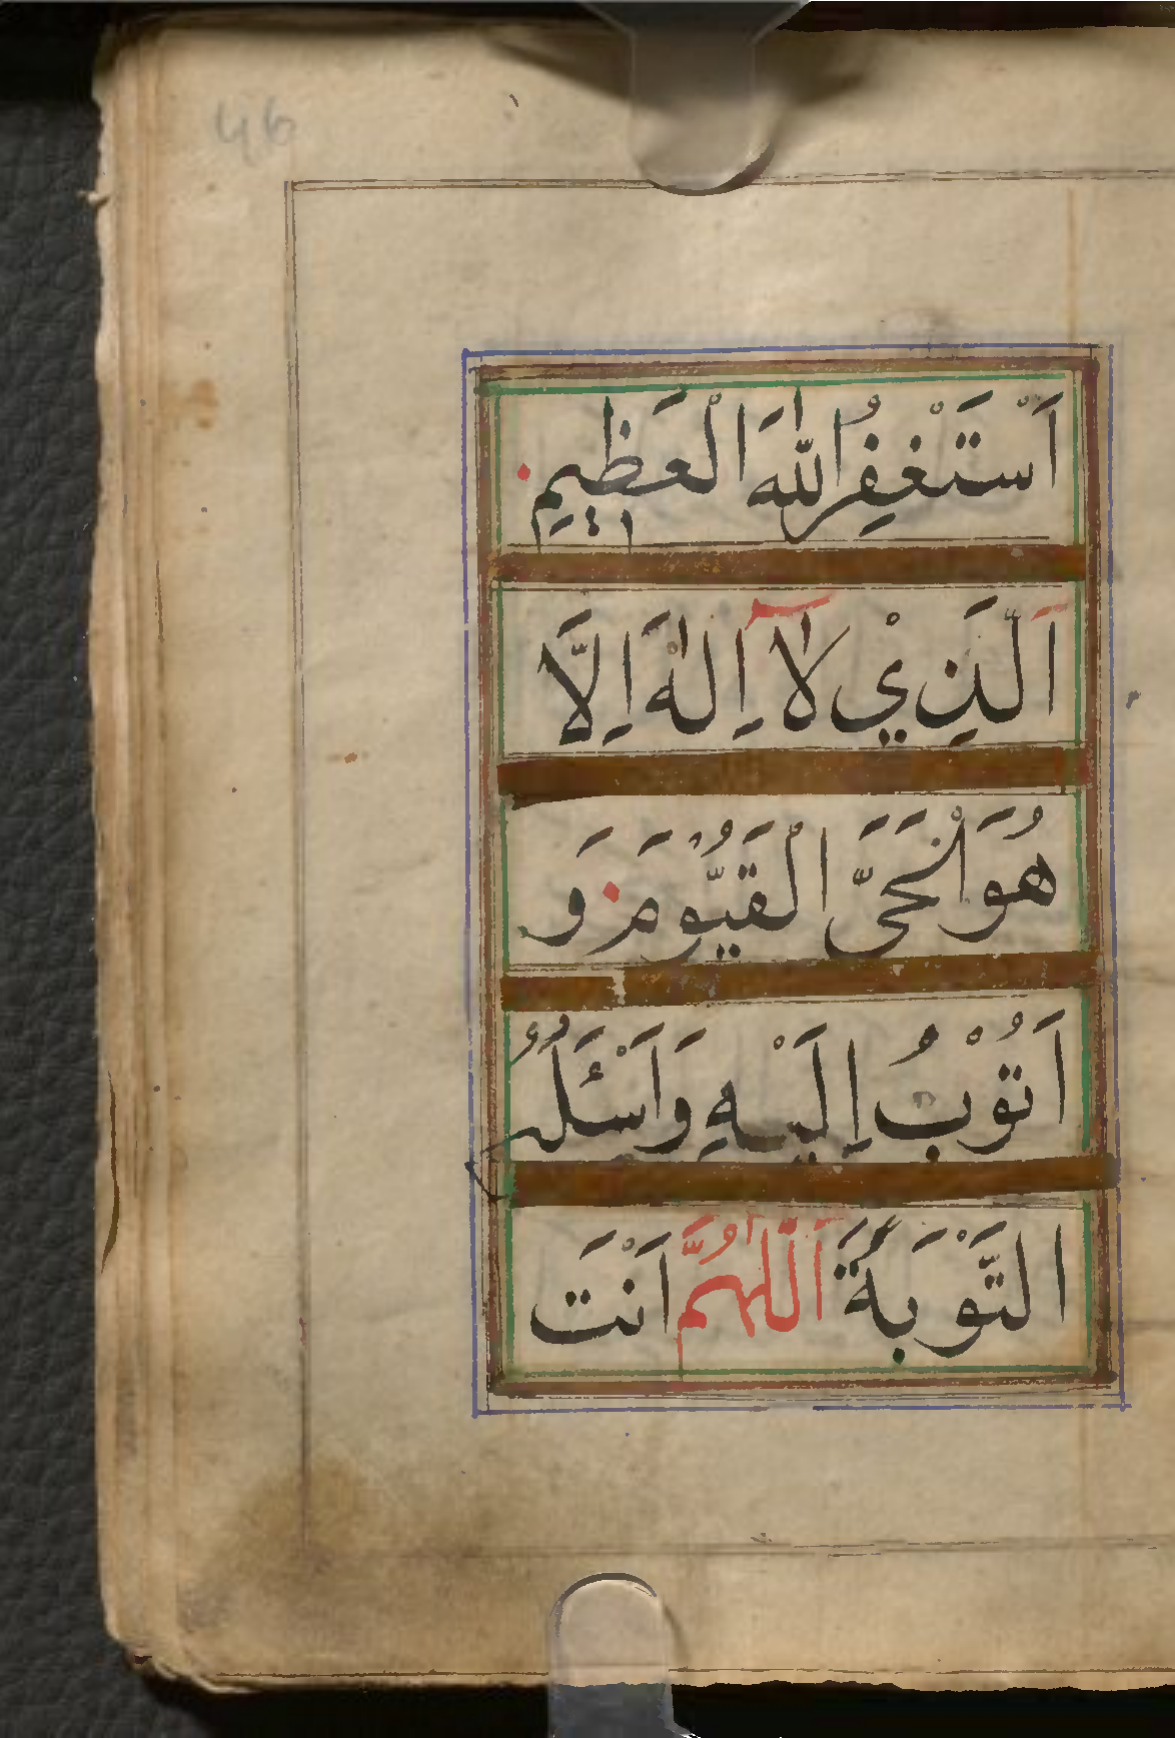 46
اَسْتَغْفِرُ اللّٰهَ الْعَظِيمِ
اَلَّذِيْ لَآ اِلٰهَ اِلَّا
هُوَ الْحَيَّ الْقَيُّومَ وَ
اَتُوْبُ اِلَيْهِ وَاَسْئَلُهُ
التَّوْبَةَ اَللّٰهُمَّ اَنْتَ